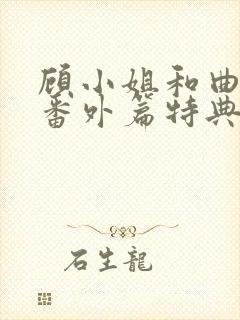 顾小姐和曲
番外篇特典
石生龍